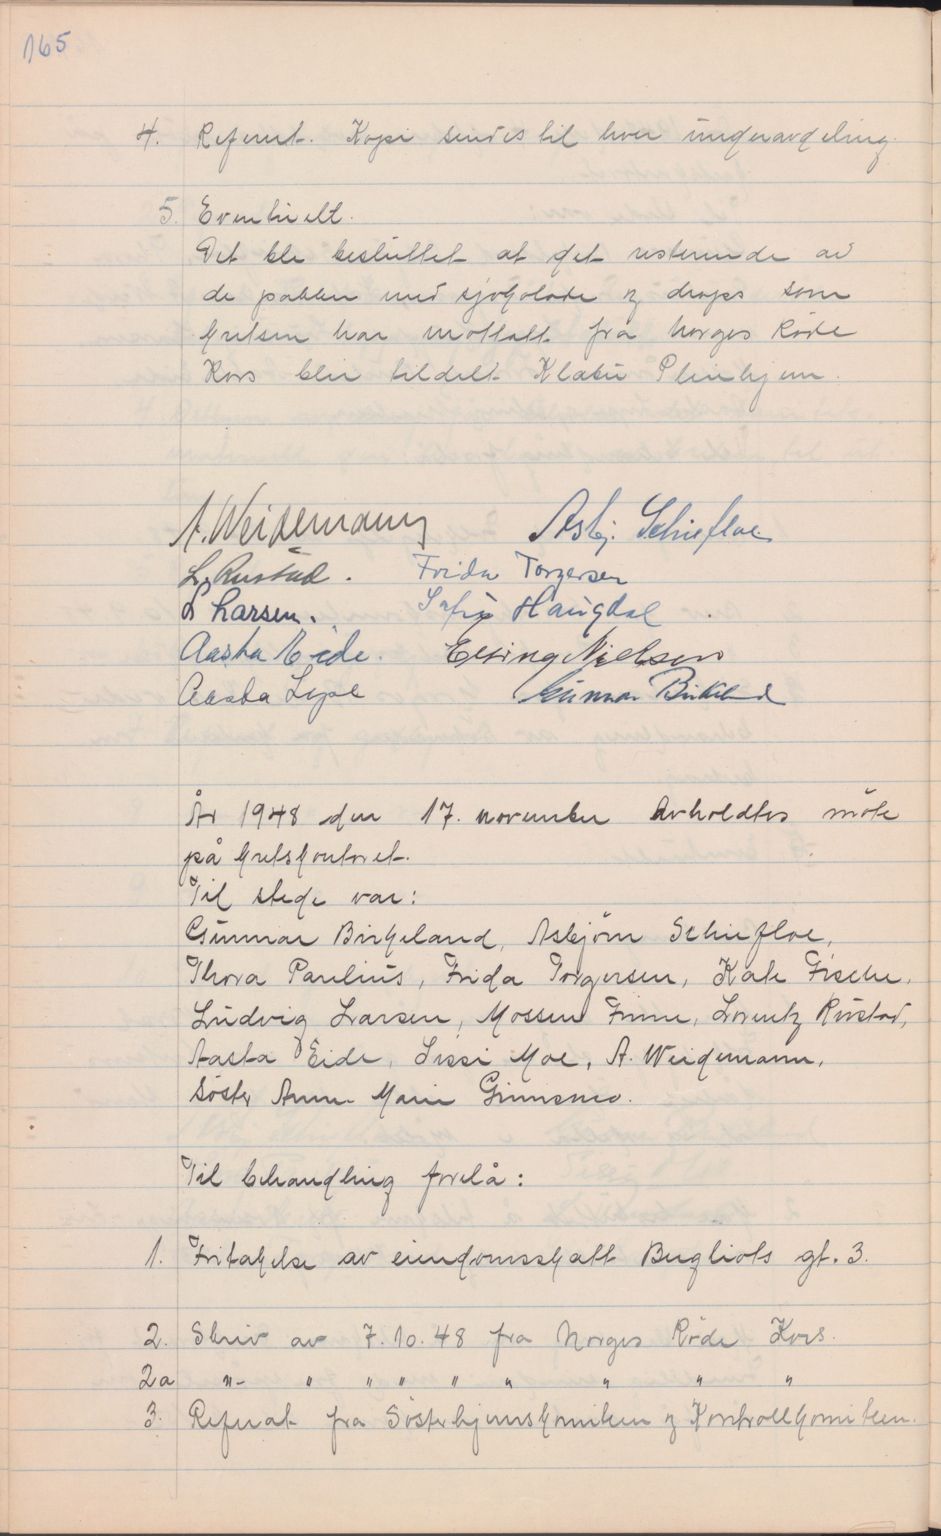 165
4. Referat. Kopi sendes til hver underavdeling.
5. Eventuelt.
Det ble besluttet at det resterende av
de pakker med sjokolade og drops som
kretsen har mottatt fra Norges Røde
Kors blir tildelt Klæbu Pleiehjem.
A. Weidemann Asbj. Schiefloe
L. Rustad. Frida Torgersen
L Larsen. Haugdal
Aasta Eide. Elling Nielsen
Aasta Gunnar Birkeland
År 1948 den 17. november avholdtes møte
på kretskontoret.
Til stede var:
Gunnar Birkeland, Asbjørn Schiefloe,
Thora Paulius, Frida Torgersen, Kate Fische,
Ludvig Larsen, Mossen Finne, Lorentz Rustad,
Aasta Eide, Lissi Moe, A. Weidemann,
Søster Anne Marie
Til behandling forelå:
1. Fritakelse av eiendomsskatt Bugliots gt. 3.
2. Skriv av 7.10.48 fra Norges Røde Kors.
2a "- " " " " " " " "
3. Referat fra Søsterhjemskomiteen og Kontrollkomiteen.